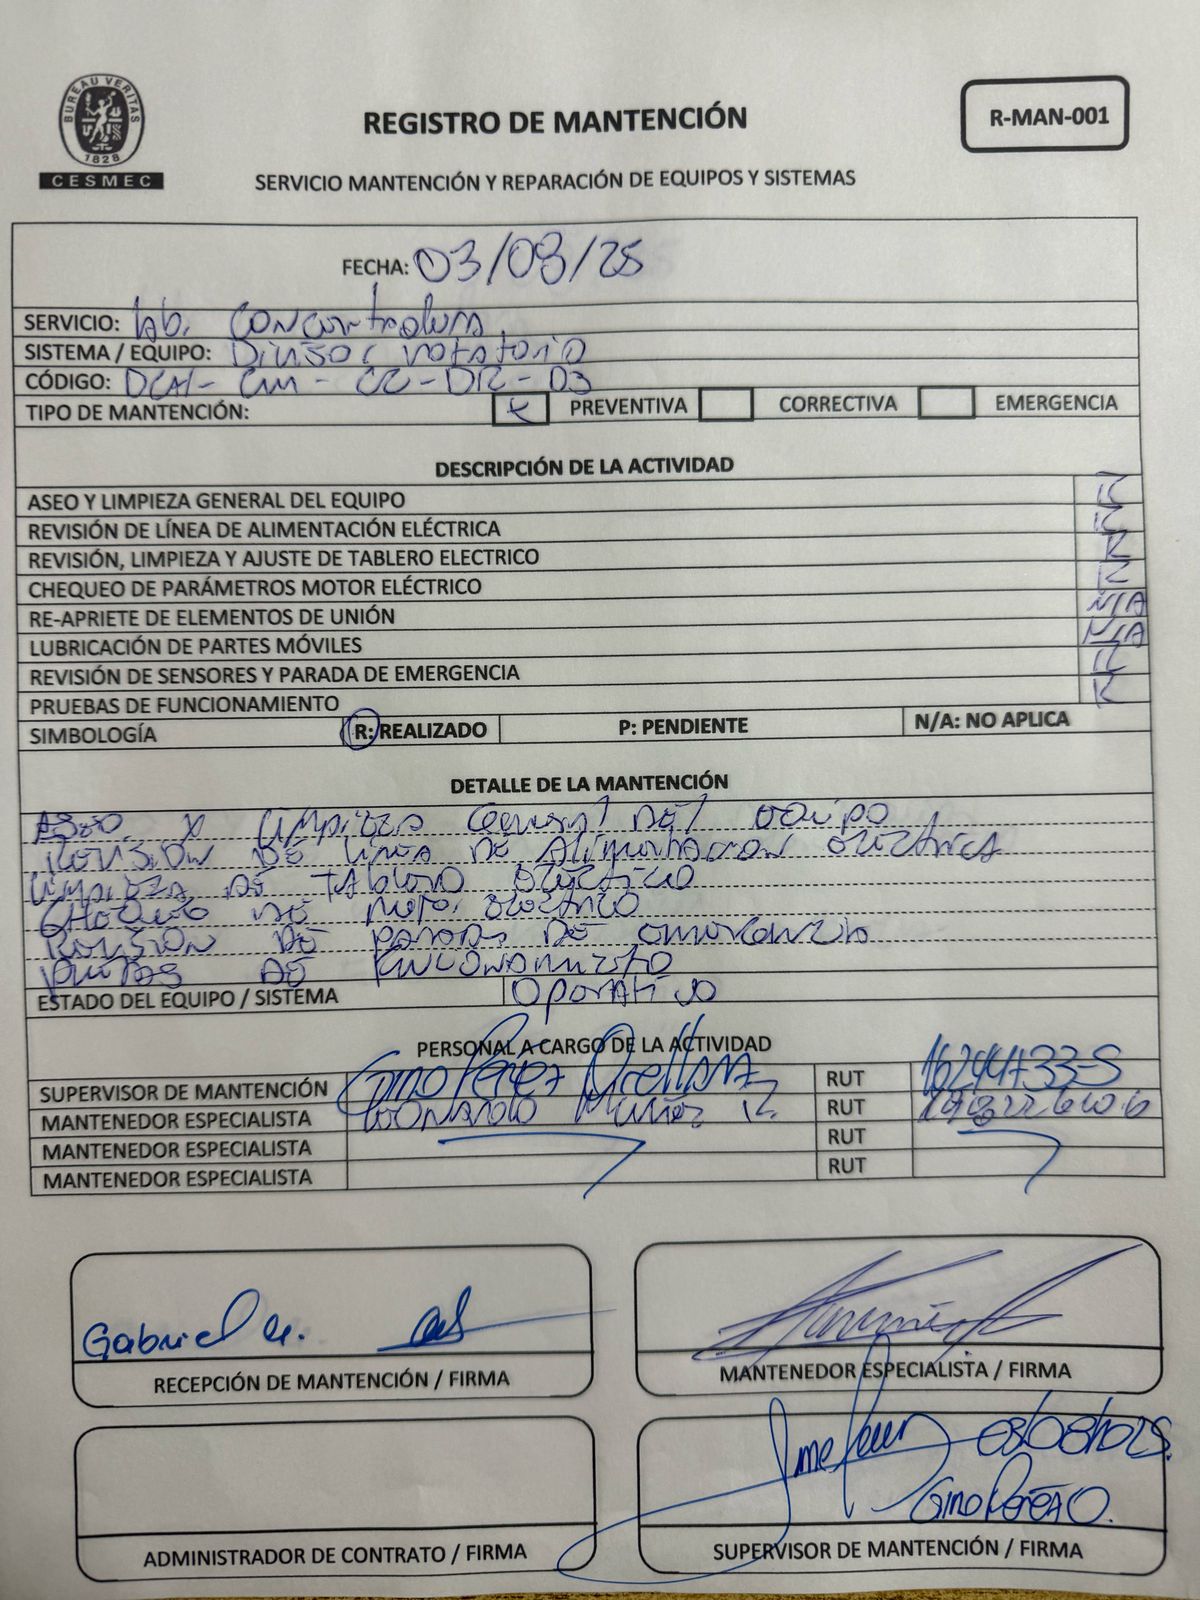 BUREAU VERITAS
1828
CESMEC
REGISTRO DE MANTENCIÓN
R-MAN-001
SERVICIO MANTENCIÓN Y REPARACIÓN DE EQUIPOS Y SISTEMAS
FECHA: 03/08/25
SERVICIO: Lab. Concentradora
SISTEMA / EQUIPO: Divisor rotatorio
CÓDIGO: DCAL- CM - CC - DR - 03
TIPO DE MANTENCIÓN: x PREVENTIVA CORRECTIVA EMERGENCIA
DESCRIPCIÓN DE LA ACTIVIDAD
ASEO Y LIMPIEZA GENERAL DEL EQUIPO R
REVISIÓN DE LÍNEA DE ALIMENTACIÓN ELÉCTRICA R
REVISIÓN, LIMPIEZA Y AJUSTE DE TABLERO ELECTRICO R
CHEQUEO DE PARÁMETROS MOTOR ELÉCTRICO R
RE-APRIETE DE ELEMENTOS DE UNIÓN N/A
LUBRICACIÓN DE PARTES MÓVILES N/A
REVISIÓN DE SENSORES Y PARADA DE EMERGENCIA R
PRUEBAS DE FUNCIONAMIENTO R
SIMBOLOGÍA R: REALIZADO P: PENDIENTE N/A: NO APLICA
DETALLE DE LA MANTENCIÓN
Aseo y limpieza general del equipo
Revisión de linea de alimentacion electrica
limpieza de tablero electrico
Chequeo de motor electrico
Revisión de parada de emergencia
Pruebas de funcionamiento
ESTADO DEL EQUIPO / SISTEMA Operativo
PERSONAL A CARGO DE LA ACTIVIDAD
SUPERVISOR DE MANTENCIÓN Gino Pérez Orellana RUT 16244733-5
MANTENEDOR ESPECIALISTA Leonardo Muñoz R. RUT
MANTENEDOR ESPECIALISTA RUT
MANTENEDOR ESPECIALISTA RUT
Gabriel G.
RECEPCIÓN DE MANTENCIÓN / FIRMA
MANTENEDOR ESPECIALISTA / FIRMA
03/08/2025.
Gino Pérez O.
ADMINISTRADOR DE CONTRATO / FIRMA
SUPERVISOR DE MANTENCIÓN / FIRMA